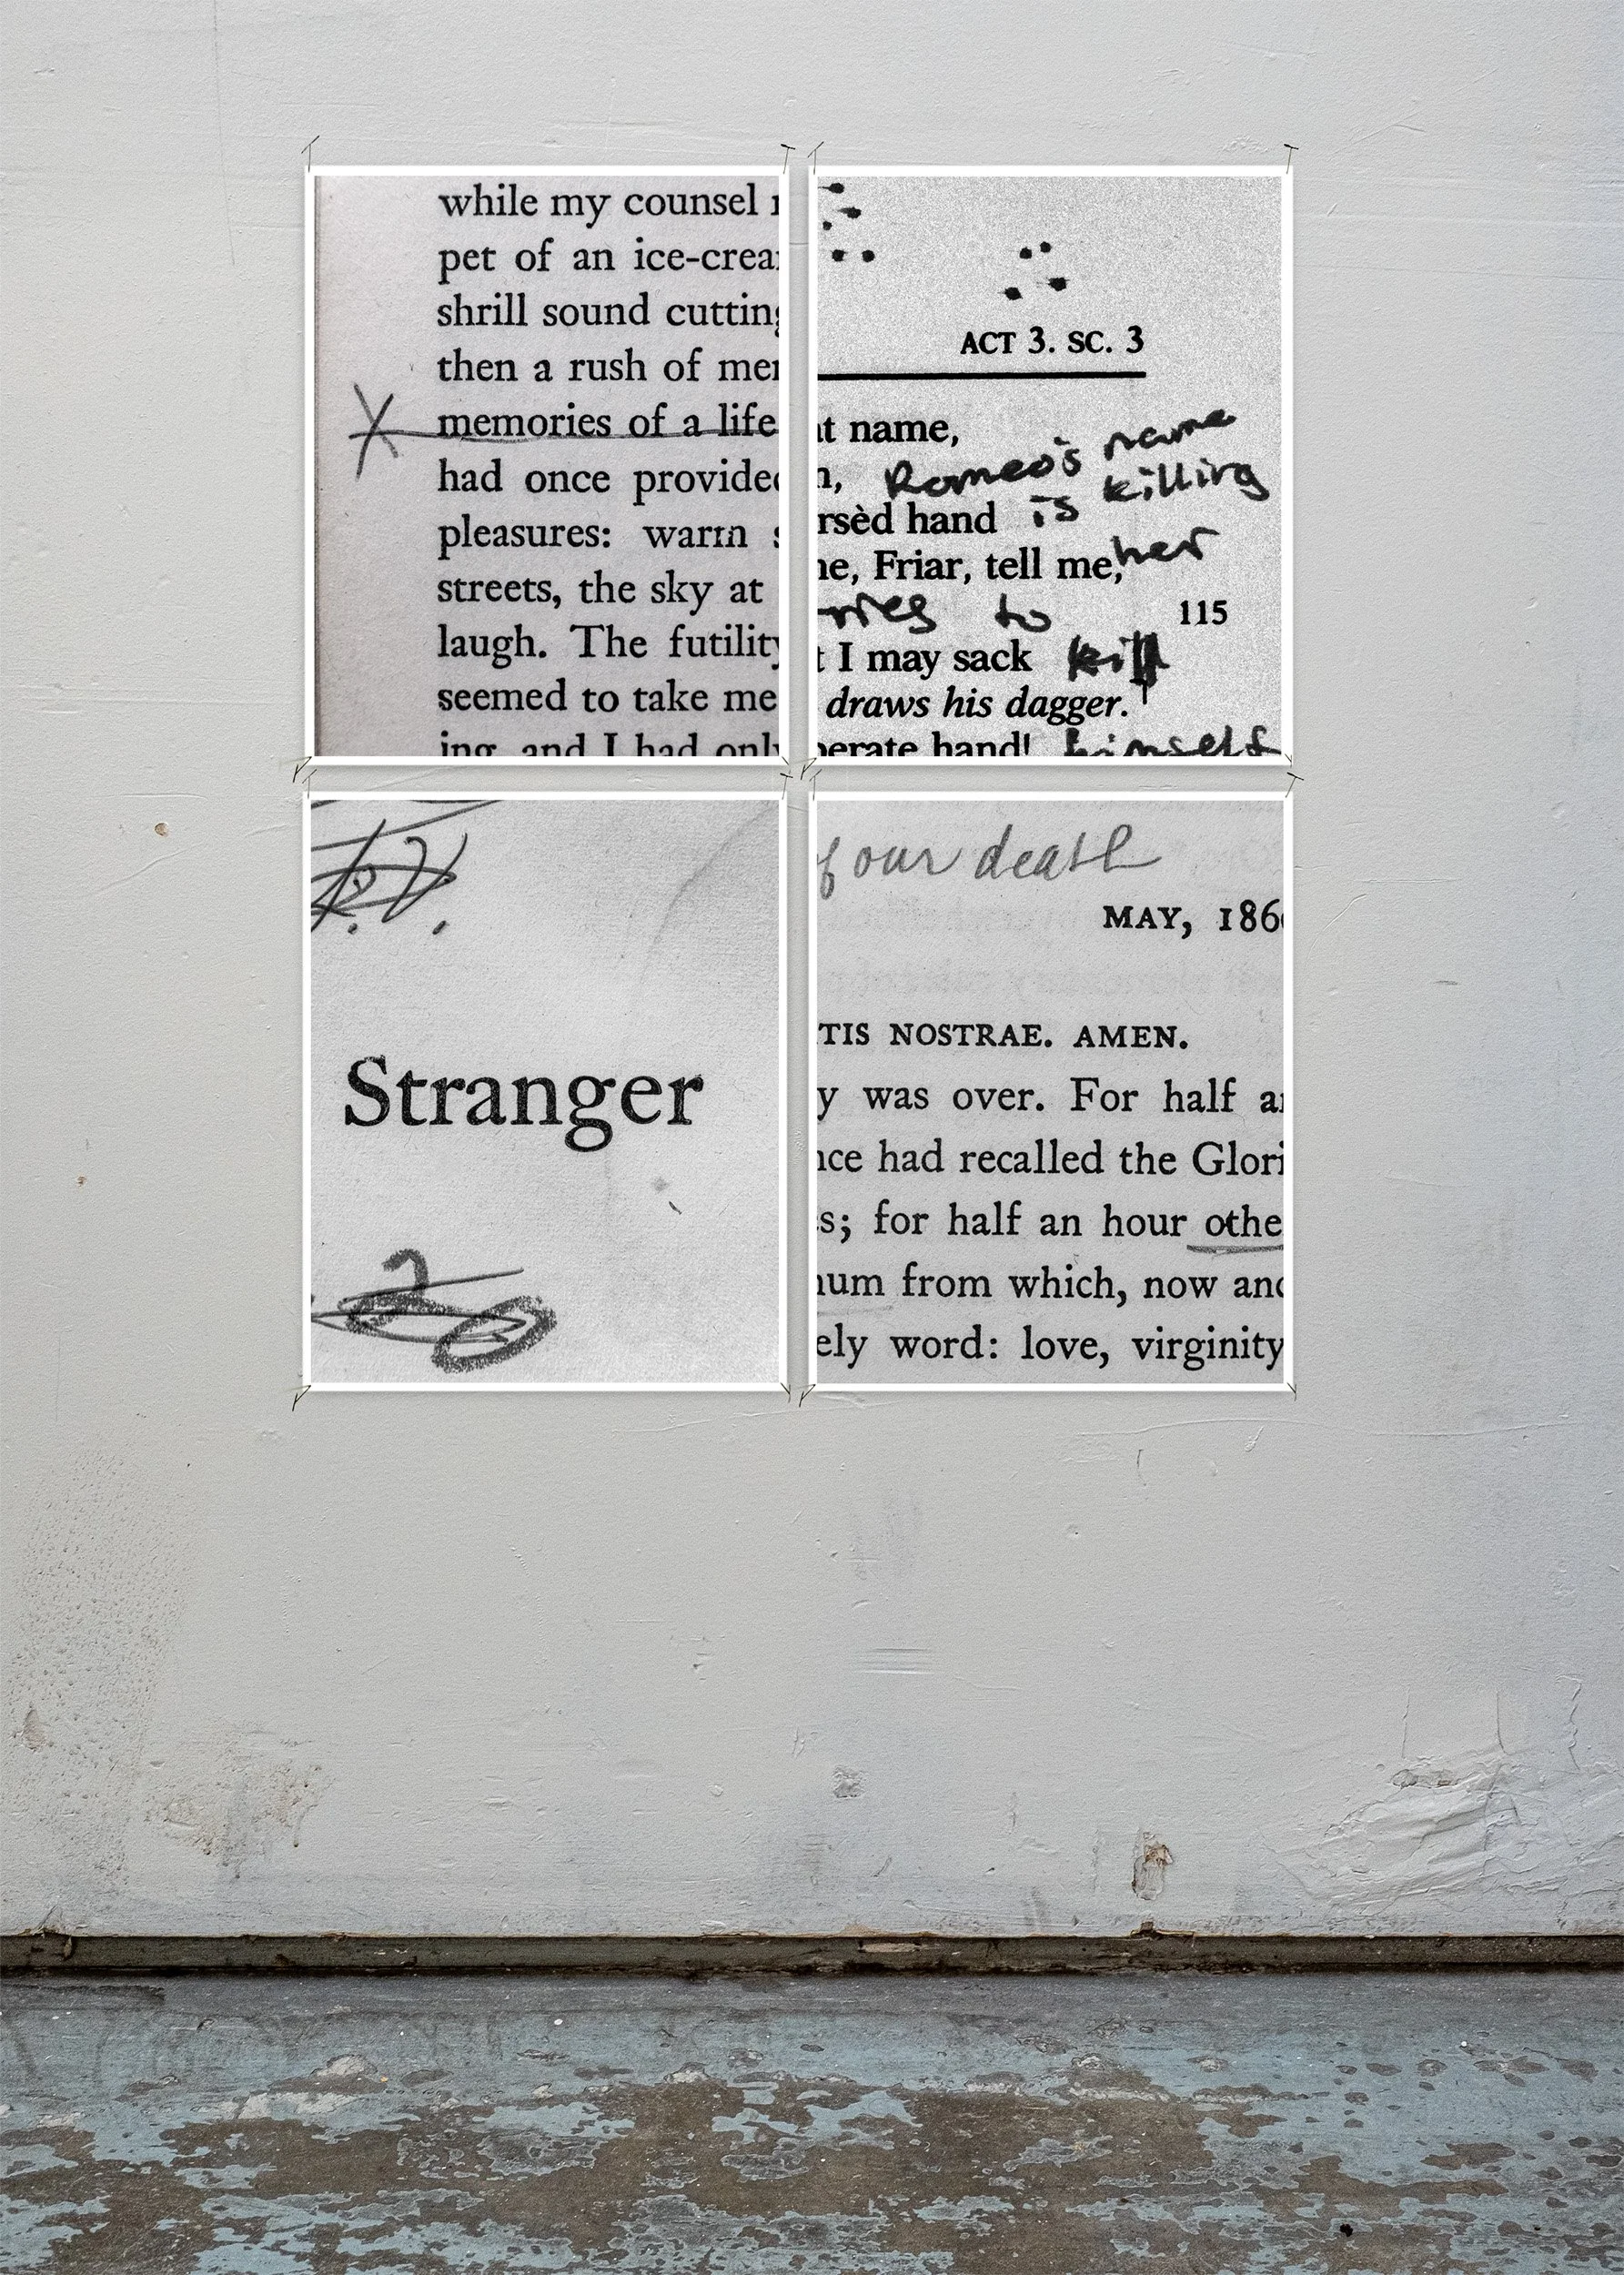 while my counsel
pet of an ice-crea
shrill sound cutting
then a rush of mem
memories of a life
had once provided
pleasures: warm s
streets, the sky at
laugh. The futility
seemed to take me
ing, and I had only
ACT 3. SC. 3
t name,
Romeo's name
is killing
rsèd hand
e, Friar, tell me,
her
ries to
115
t I may sack
kill
draws his dagger.
perate hand!
himself
Stranger
f our death
MAY, 186
TIS NOSTRAE. AMEN.
y was over. For half a
nce had recalled the Glori
s; for half an hour othe
num from which, now and
ely word: love, virginity